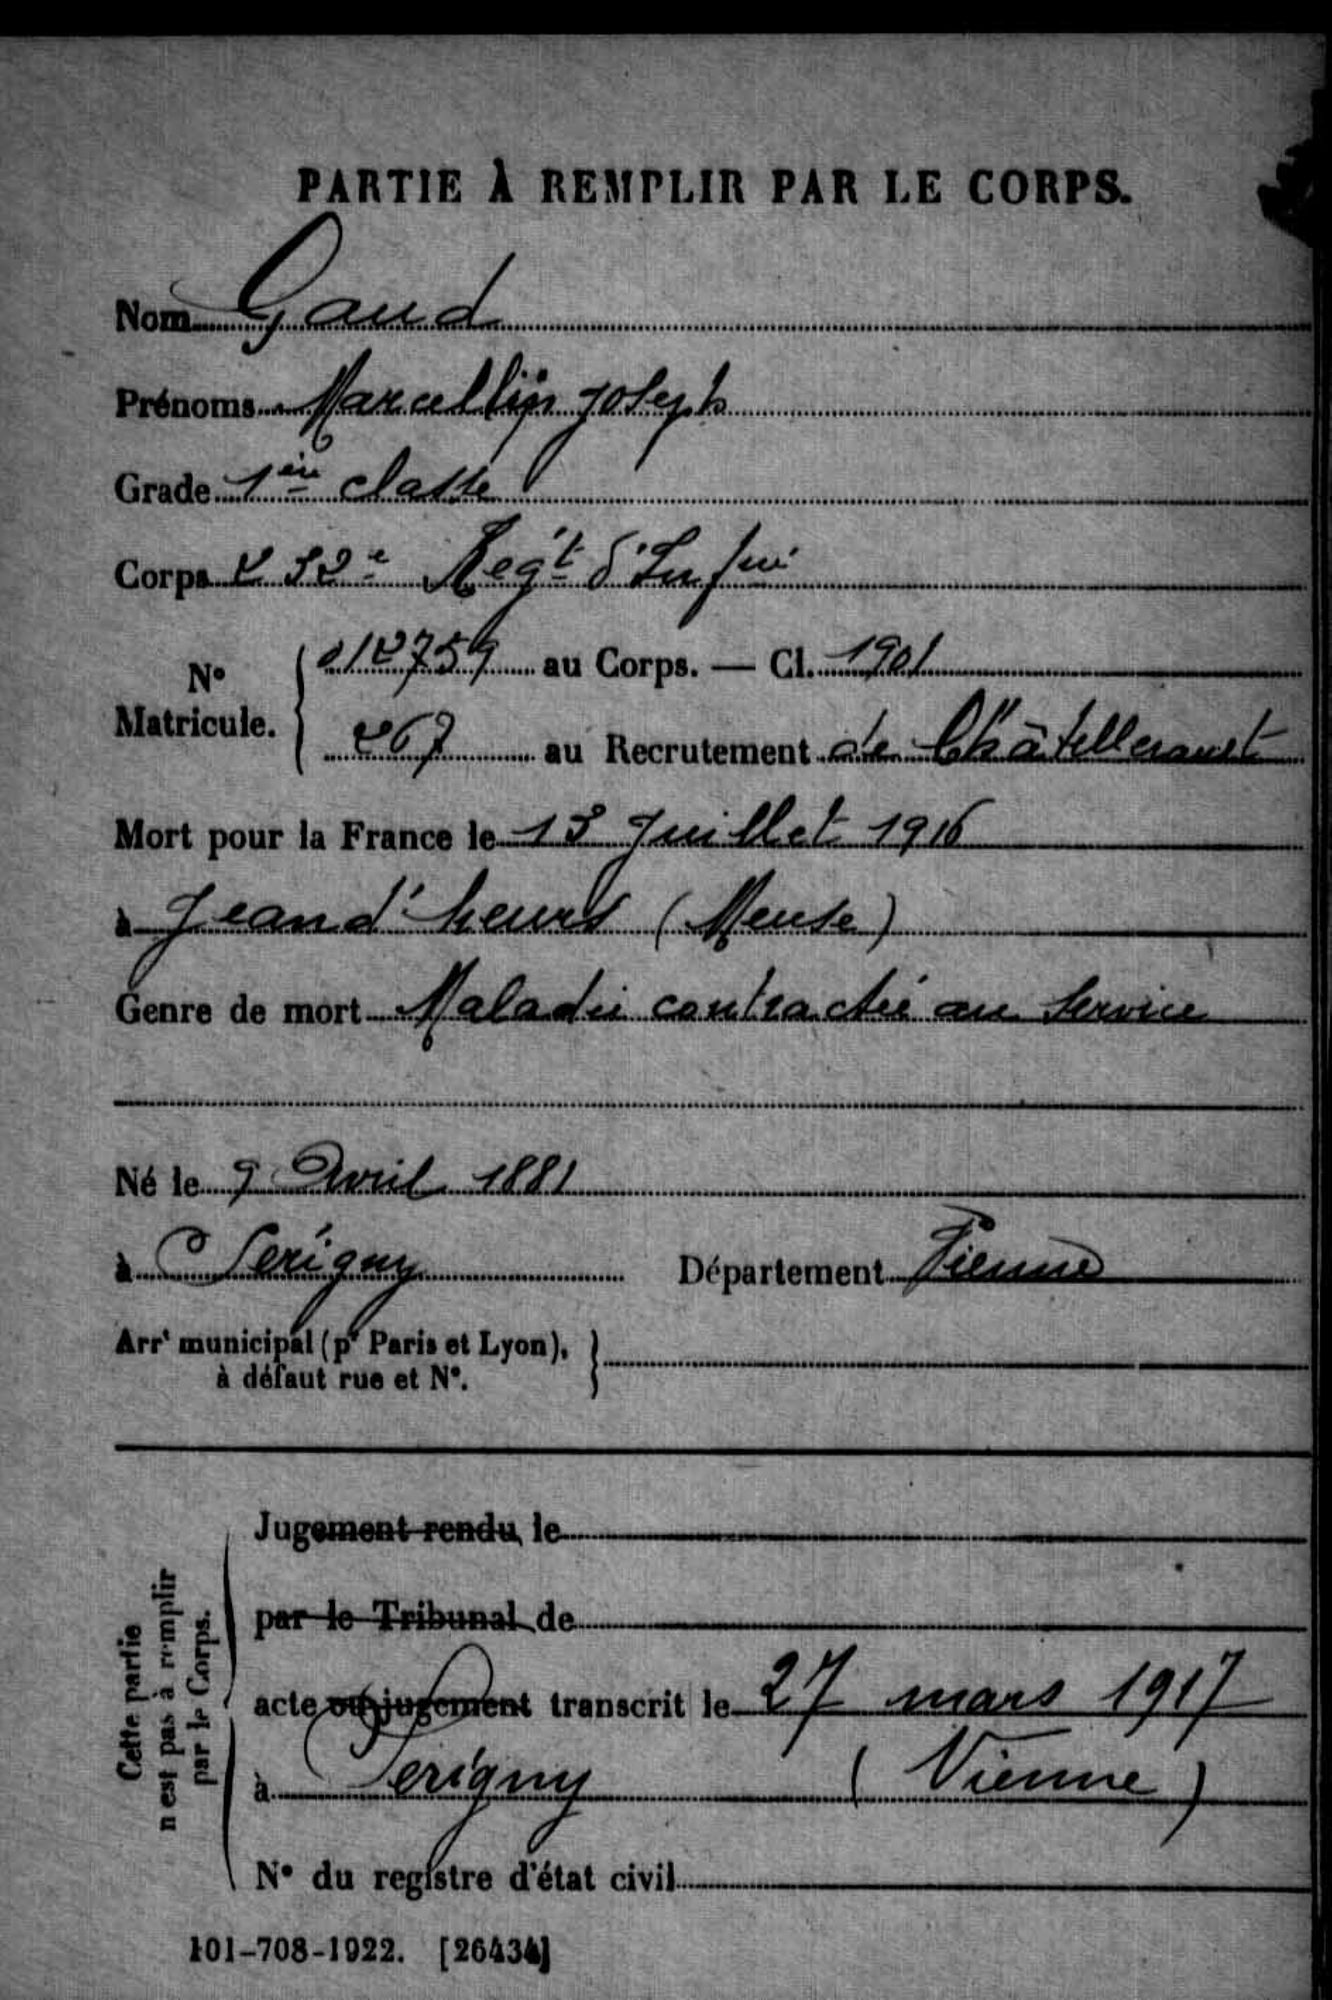 PARTIE À REMPLIR PAR LE CORPS.
Nom Gaud
Prénoms Marcellin Joseph
Grade 1ère classe
Corps 232e Regt d'Infrie
N° Matricule. 012759 au Corps. — Cl. 1901
267 au Recrutement de Châtellerault
Mort pour la France le 13 Juillet 1916
à Jeand'heurs (Meuse)
Genre de mort Maladie contractée au service
Né le 9 Avril 1881
à Serigny Département Vienne
Arrt municipal (pr Paris et Lyon),
à défaut rue et N°.
Cette partie
n'est pas à remplir
par le Corps.
Jugement rendu le
par le Tribunal de
acte ou jugement transcrit le 27 mars 1917
à Serigny (Vienne)
N° du registre d'état civil
101-708-1922. [26434]